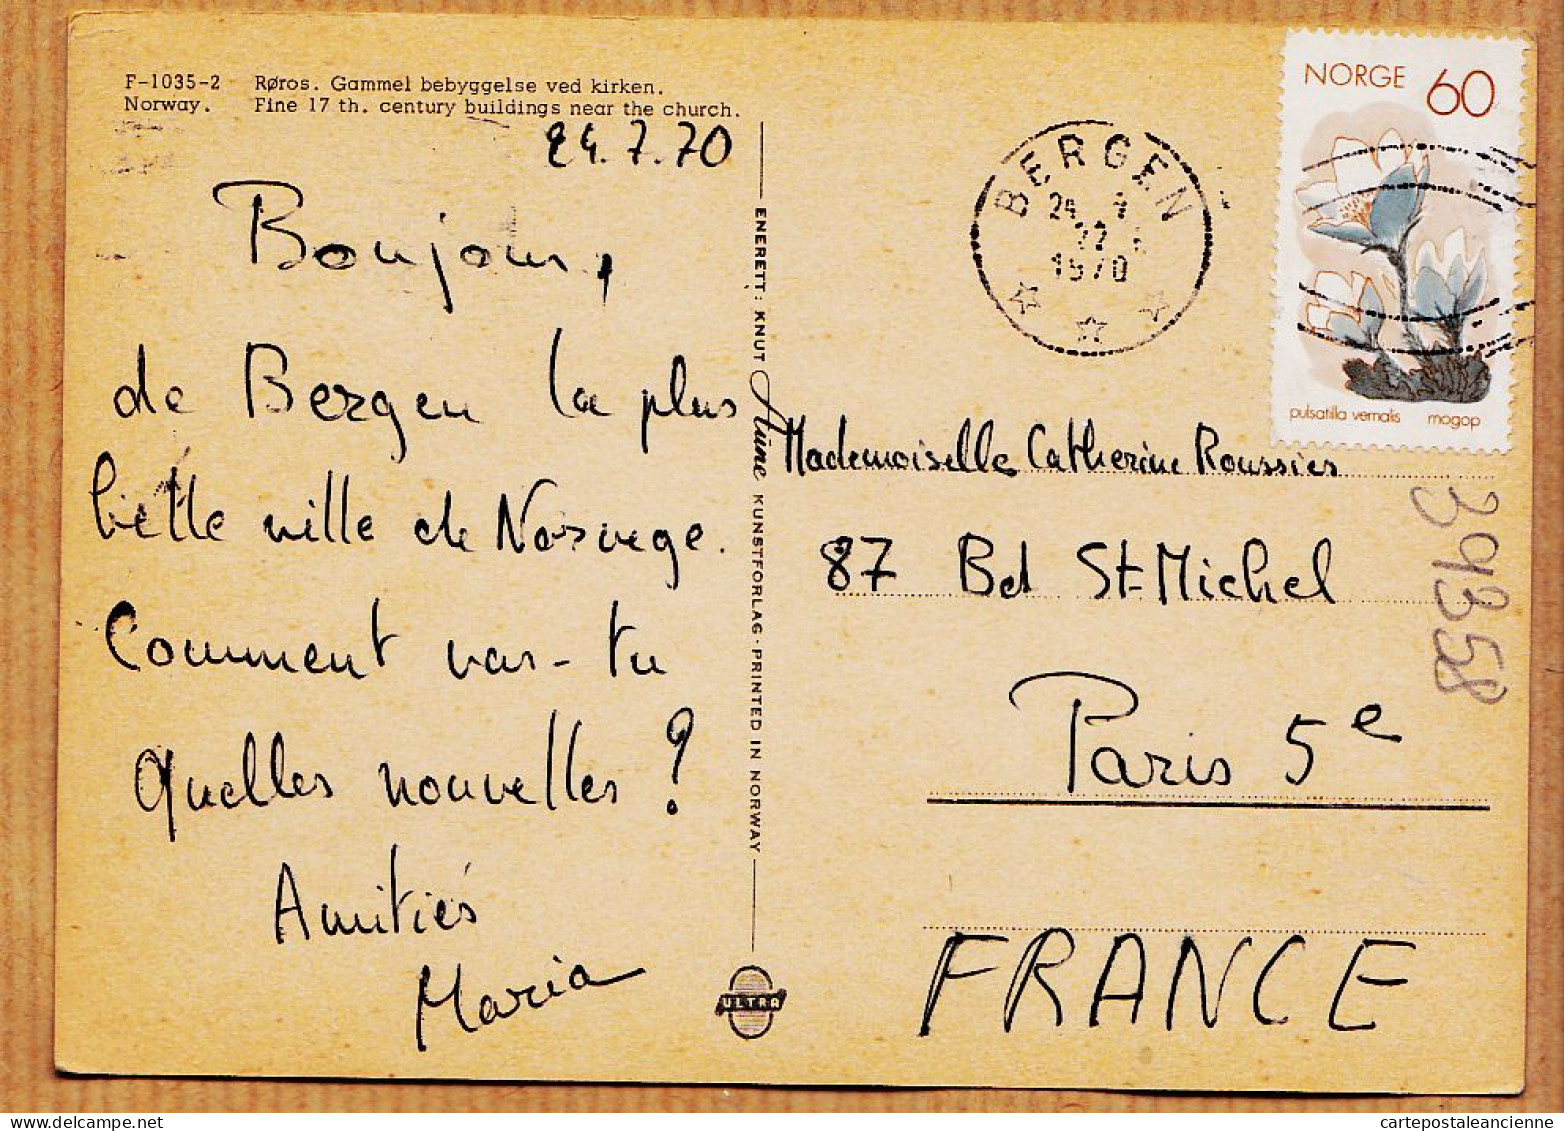 F-1035-2 Røros. Gammel bebyggelse ved kirken.
Norway. Fine 17 th. century buildings near the church.
24.7.70
Bonjour,
de Bergen la plus
belle ville de Norvège.
Comment vas-tu
Quelles nouvelles ?
Amitiés
Maria
ENERETT: KNUT Aune KUNSTFORLAG - PRINTED IN NORWAY
ULTRA
BERGEN
24 7
22
1970
NORGE 60
pulsatilla vernalis mogop
Mademoiselle Catherine Roussies
87 Bd St-Michel
Paris 5e
FRANCE
39358
cartepostaleancienne